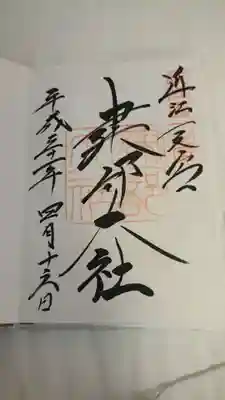 近江一之宮
建部大社
平成三十一年 四月十六日